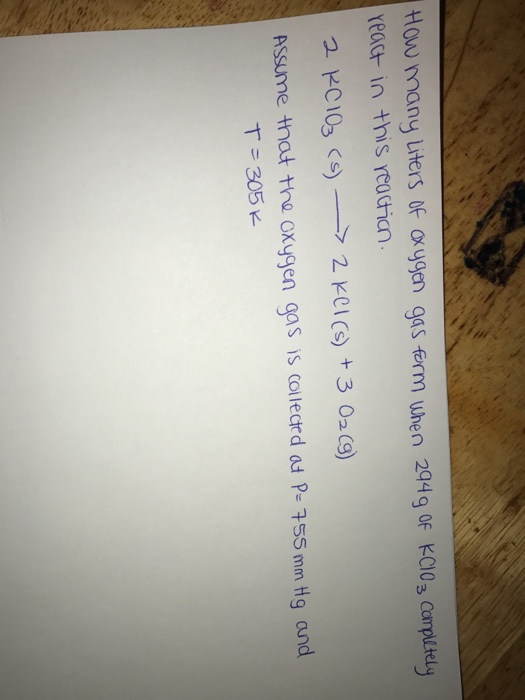 How many liters of oxygen gas form when 294g of KClO3 completely
react in this reaction.
2 KClO3 (s) → 2 KCl(s) + 3 O2(g)
Assume that the oxygen gas is collected at P = 755 mm Hg and
T = 305 K